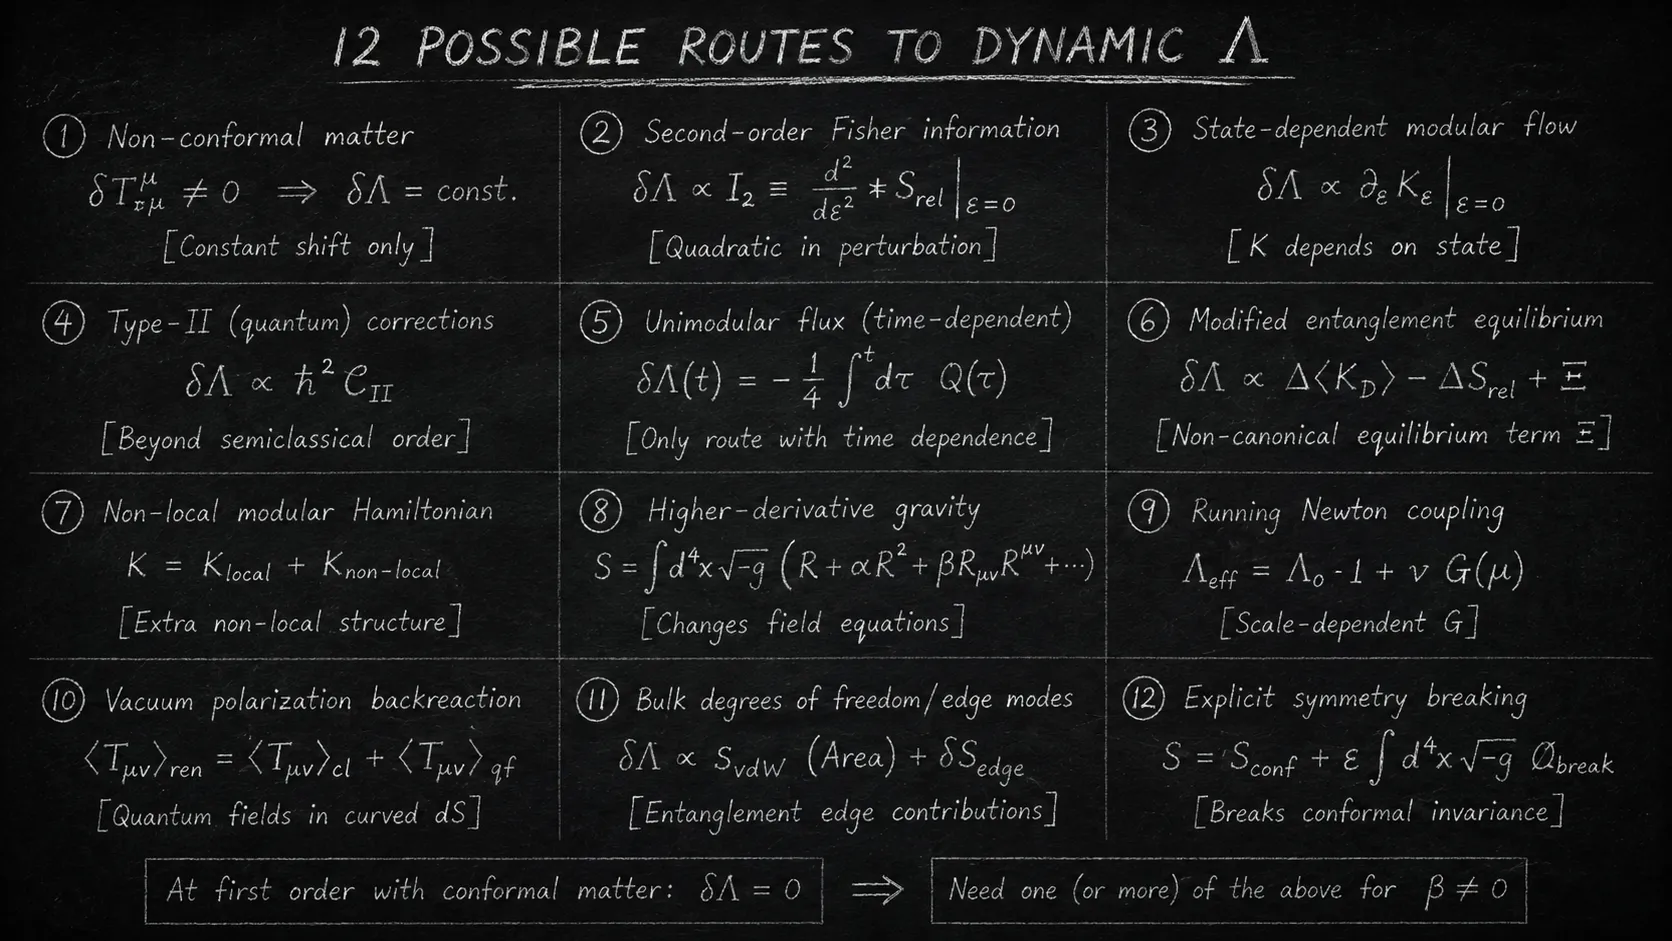 12 POSSIBLE ROUTES TO DYNAMIC Λ
① Non-conformal matter
δT^μ_{εμ} ≠ 0 ⟹ δΛ = const.
[Constant shift only]
② Second-order Fisher information
δΛ ∝ I₂ ≡ d²/dε² * S_rel |_{ε=0}
[Quadratic in perturbation]
③ State-dependent modular flow
δΛ ∝ ∂_ε K_ε |_{ε=0}
[K depends on state]
④ Type-II (quantum) corrections
δΛ ∝ ħ² C_II
[Beyond semiclassical order]
⑤ Unimodular flux (time-dependent)
δΛ(t) = - 1/4 ∫^t dτ Q(τ)
[Only route with time dependence]
⑥ Modified entanglement equilibrium
δΛ ∝ Δ⟨K_D⟩ - ΔS_rel + Ξ
[Non-canonical equilibrium term Ξ]
⑦ Non-local modular Hamiltonian
K = K_local + K_non-local
[Extra non-local structure]
⑧ Higher-derivative gravity
S = ∫d⁴x√-g (R + αR² + βR_μν R^μν + ···)
[Changes field equations]
⑨ Running Newton coupling
Λ_eff = Λ₀ · 1 + ν G(μ)
[Scale-dependent G]
⑩ Vacuum polarization backreaction
⟨T_μν⟩_ren = ⟨T_μν⟩_cl + ⟨T_μν⟩_qf
[Quantum fields in curved dS]
⑪ Bulk degrees of freedom/edge modes
δΛ ∝ S_vdW (Area) + δS_edge
[Entanglement edge contributions]
⑫ Explicit symmetry breaking
S = S_conf + ε ∫ d⁴x √-g Ø_break
[Breaks conformal invariance]
At first order with conformal matter: δΛ = 0 ⟹ Need one (or more) of the above for β ≠ 0